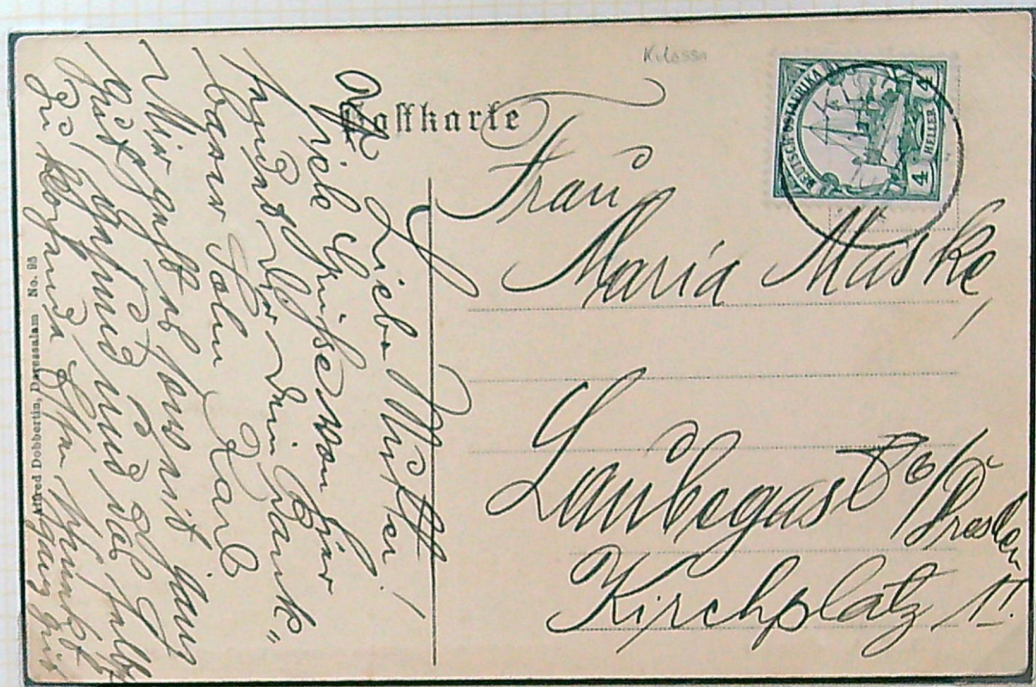 Kilossa
Postkarte
DEUTSCH-OSTAFRIKA
4 4
HELLER
Frau
Maria Maske,
Laubegast b/Dresden
Kirchplatz 11.
Liebe Mutter!
Viele Grüße von hier
sendet Dir Dein dank-
barer Sohn Karl
Mir geht es soweit ganz
gut, gesund und das selbe
Alfred Dobbertin, Daressalam No. 95